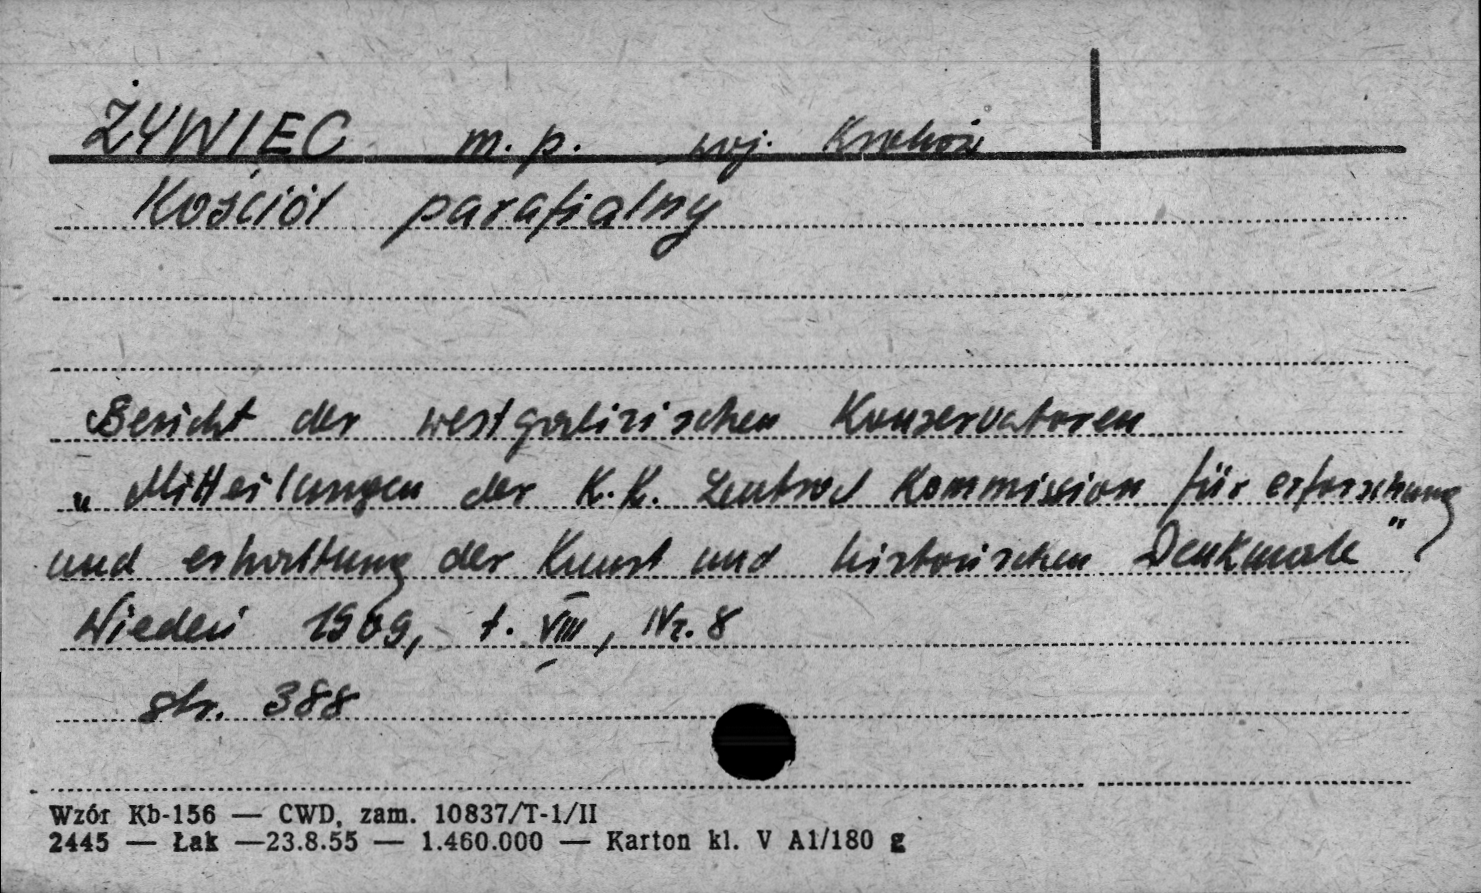 ŻYWIEC m. p. woj. Kraków
Kościół parafialny
Bericht der westgalizischen Konservatoren
„Mitteilungen der K. K. Zentral Kommission für erforschung
und erhaltung der Kunst und historischen Denkmale"
Wiedeń 1909, t. VIII, Nr. 8
str. 388
Wzór Kb-156 — CWD, zam. 10837/T-1/II
2445 — Łak —23.8.55 — 1.460.000 — Karton kl. V A1/180 g